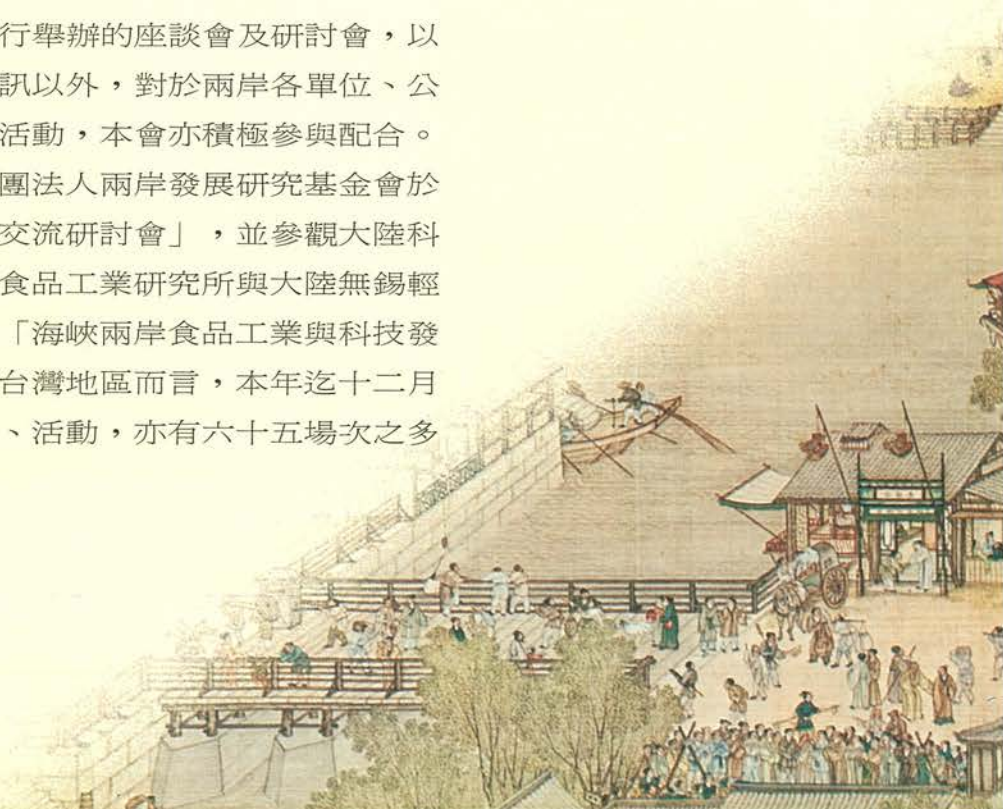 行舉辦的座談會及研討會，以
訊以外，對於兩岸各單位、公
活動，本會亦積極參與配合。
團法人兩岸發展研究基金會於
交流研討會」，並參觀大陸科
食品工業研究所與大陸無錫輕
「海峽兩岸食品工業與科技發
台灣地區而言，本年迄十二月
、活動，亦有六十五場次之多